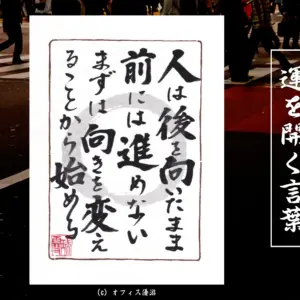 運を開く言葉
人は後を向いたまま
前には進めない
まずは向きを変え
ることから始める
(c) オフィス蓮沼